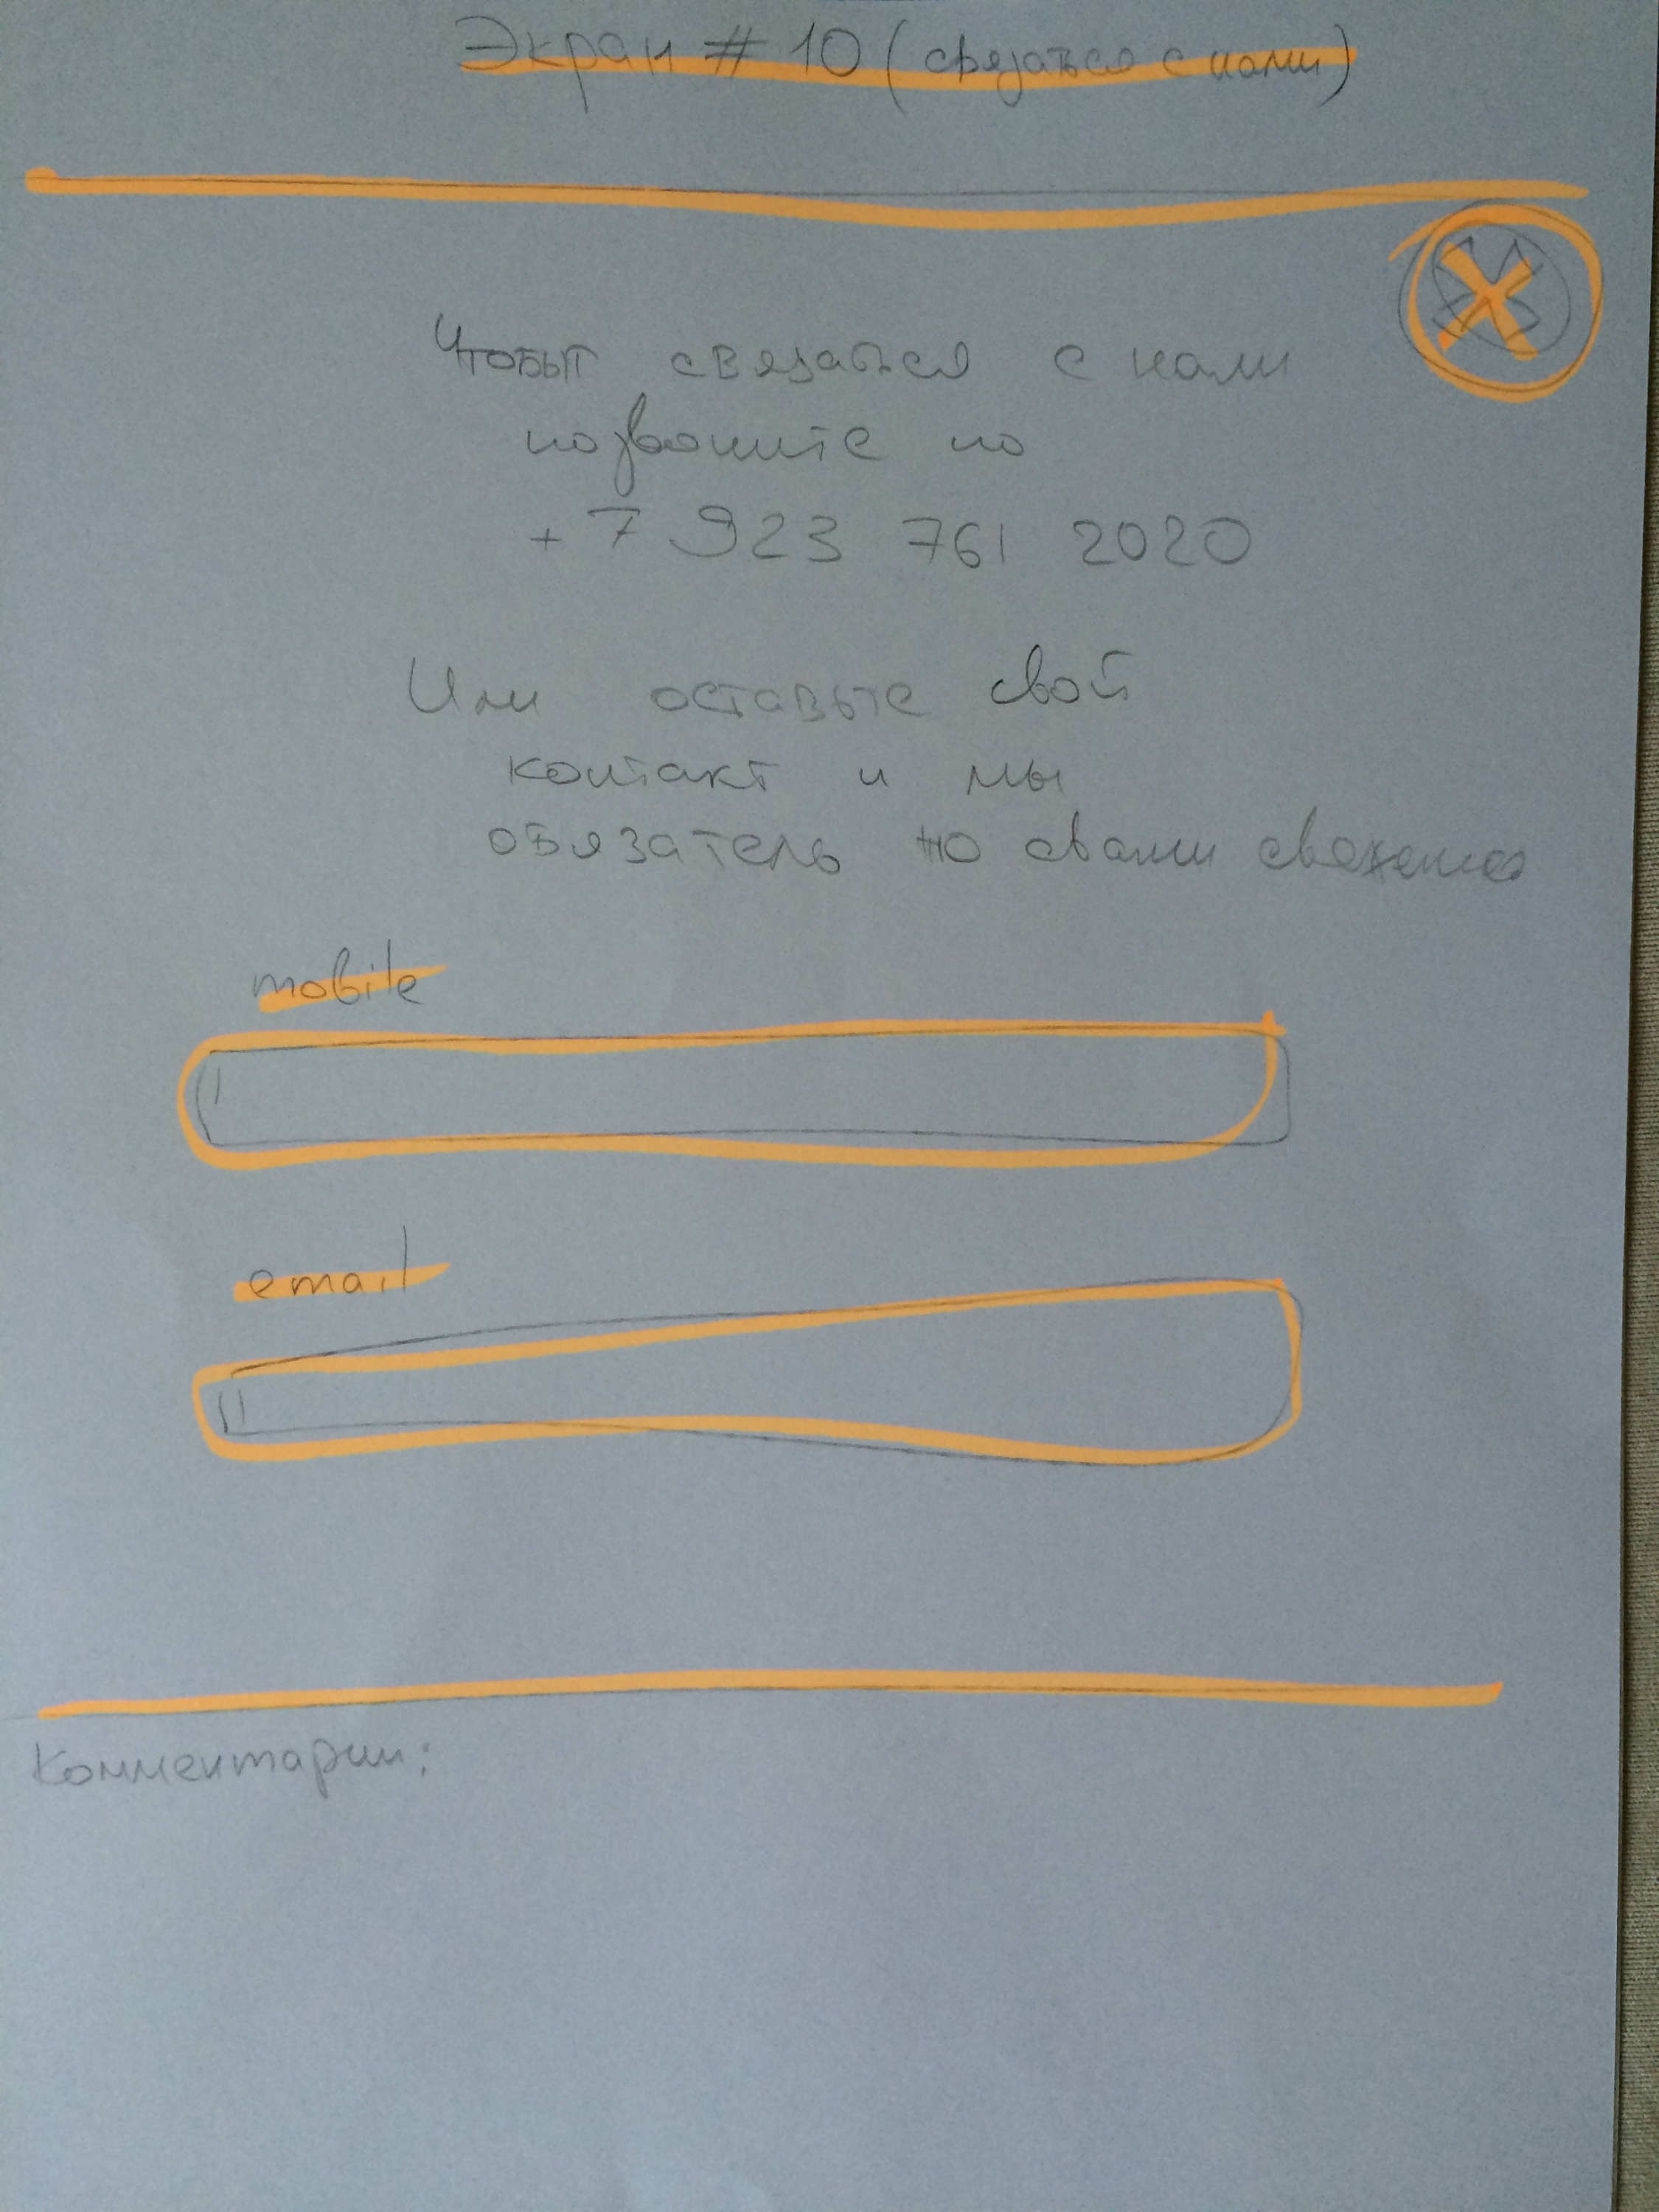 Экран # 10 (связаться с нами)
Чтобы связаться с нами
позвоните по
+ 7 923 761 2020
Или оставьте свой
контакт и мы
обязательно свами свяжемся
mobile
email
Комментарии: